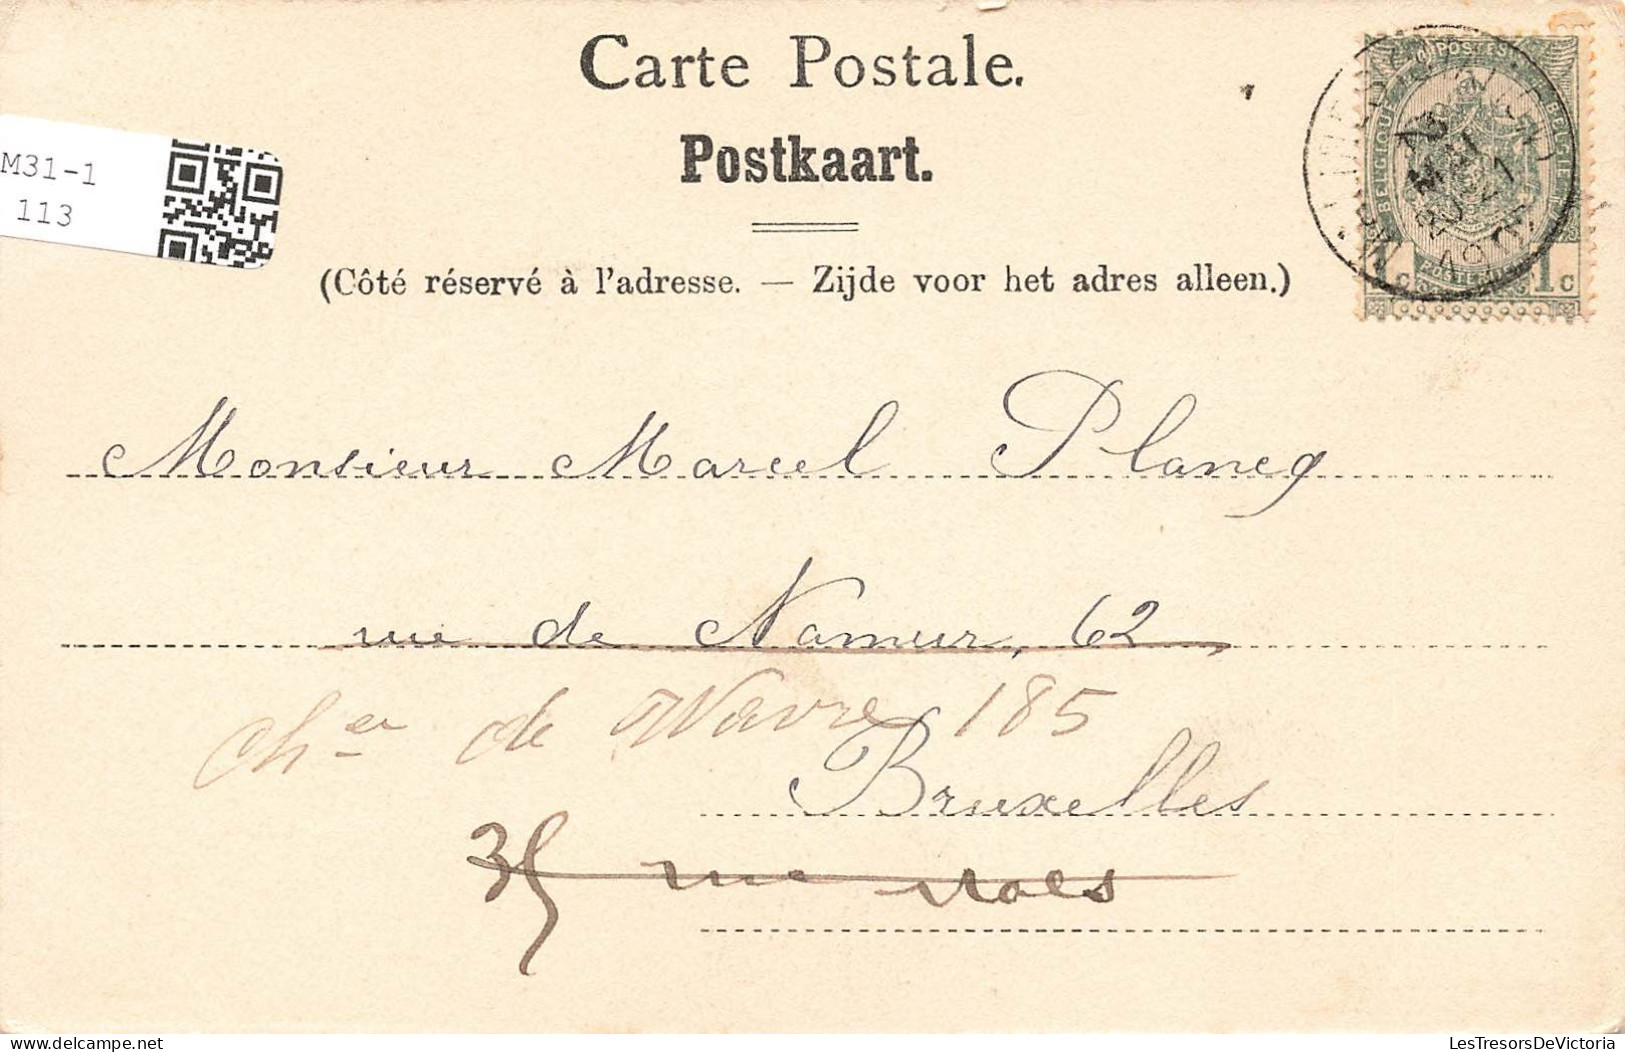 Carte Postale.
Postkaart.
(Côté réservé à l'adresse. — Zijde voor het adres alleen.)
M31-1
113
POSTES
BELGIQUE
BELGIE
1c 1c
Monsieur Marcel Plancq
rue de Namur, 62
Ch ée de Wavre 185
Bruxelles
35 rue
LesTresorsDeVictoria